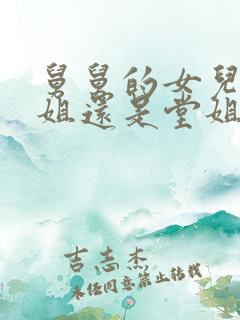 舅舅的女兒
姐還是堂姐
吉志杰
未经同意禁止转载